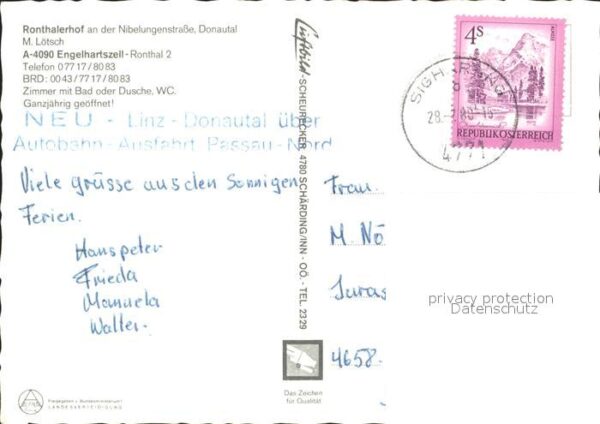 Ronthalerhof an der Nibelungenstraße, Donautal
M. Lötsch
A-4090 Engelhartszell - Ronthal 2
Telefon 07717/8083
BRD: 0043/7717/8083
Zimmer mit Bad oder Dusche, WC.
Ganzjährig geöffnet!
NEU - Linz - Donautal über
Autobahn - Ausfahrt Passau - Nord
Viele grüsse aus den Sonnigen
Ferien.
Hanspeter
Frieda
Manuela
Walter.
Luftbild-SCHEURECKER 4780 SCHÄRDING/INN - OÖ. - TEL. 2329
Das Zeichen
für Qualität
4S
REPUBLIK ÖSTERREICH
SIGHARTING
4771
Frau.
M. Nö
Juras
4658.
privacy protection
Datenschutz